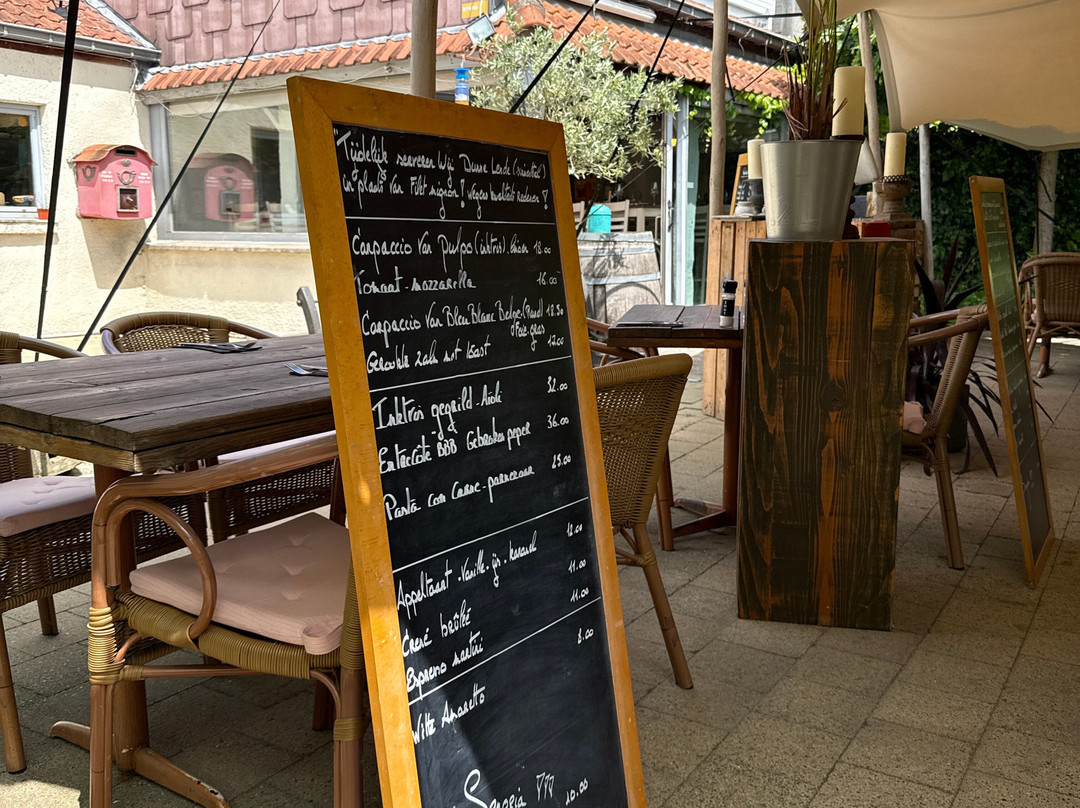 "Tijdelijk serveren wij Dame Lende (simental)
in plaats van Filet mignon, wegens kwaliteits redenen !
Carpaccio Van Pulpo (inktvis). 18.00
Tomaat - mozzarella 16.00
Carpaccio Van Bleu Blanc Belge (Rund) 18.50
Foie gras
Gerookte zalm met toast 12.00
Inktvis gegrild - Aïoli 32.00
Entrecôte BBB Gebroken peper 36.00
Pasta con Carne - parmezaan 25.00
Appeltaart - Vanille - ijs - karamel 12.00
Cremé brûlée 11.00
Espresso martini 11.00
Witte Amaretto 8.00
20.00